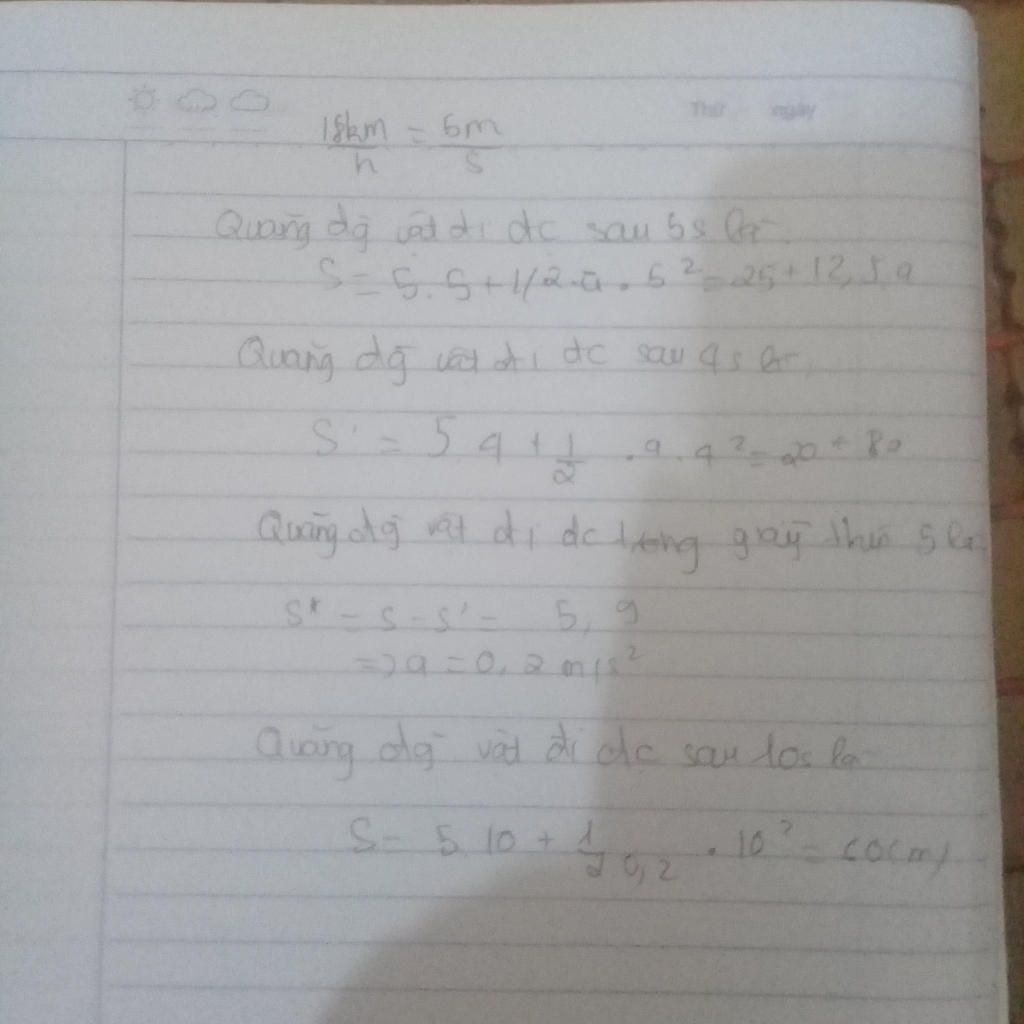 Thứ ngày
18km/h = 5m/s
Quãng đg vật đi dc sau 5s là
S = 5.5 + 1/2.a.5² = 25 + 12,5a
Quãng đg vật đi dc sau 4s là
S' = 5 4 + 1/2 .a.4² = 20 + 8a
Quãng đg vật đi dc trong giây thứ 5 là
S* = S - S' = 5,9
=> a = 0,2 m/s²
Quãng đg vật đi dc sau 10s là
S = 5 10 + 1/2 0,2 . 10² = 60(m)